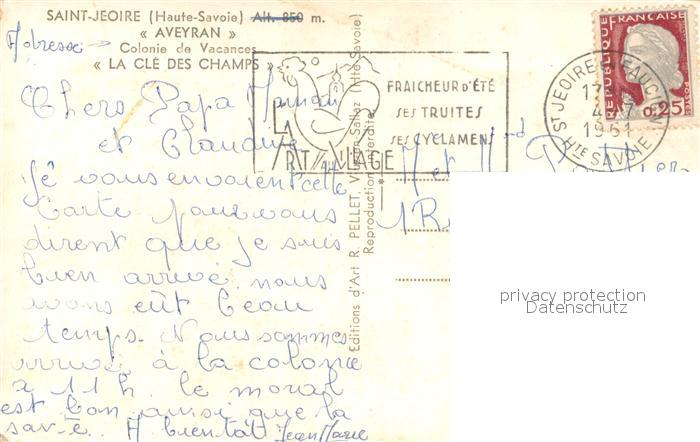 SAINT-JEOIRE (Haute-Savoie) Alt. 850 m.
« AVEYRAN »
Colonie de Vacances
« LA CLÉ DES CHAMPS »
Adresse →
Chers Papa Maman
et Claudine
Je vous envoient cette
Carte pour vous
dirent que je suis
bien arrivé nous
avons eût beau
temps. Nous sommes
arrivé à la colonie
à 11h. le moral
est bon ainsi que la
santé. A bientôt Jean Marie
Editions d'Art R. PELLET, (Hte-Savoie)
Reproduction interdite
LA
ART VILLAGE
FRAICHEUR D'ÉTÉ
SES TRUITES
SES CYCLAMENS
ST JEOIRE EN FAUCIGNY
17H
1961
HTE SAVOIE
REPUBLIQUE FRANÇAISE
0,25
M et M
privacy protection
Datenschutz